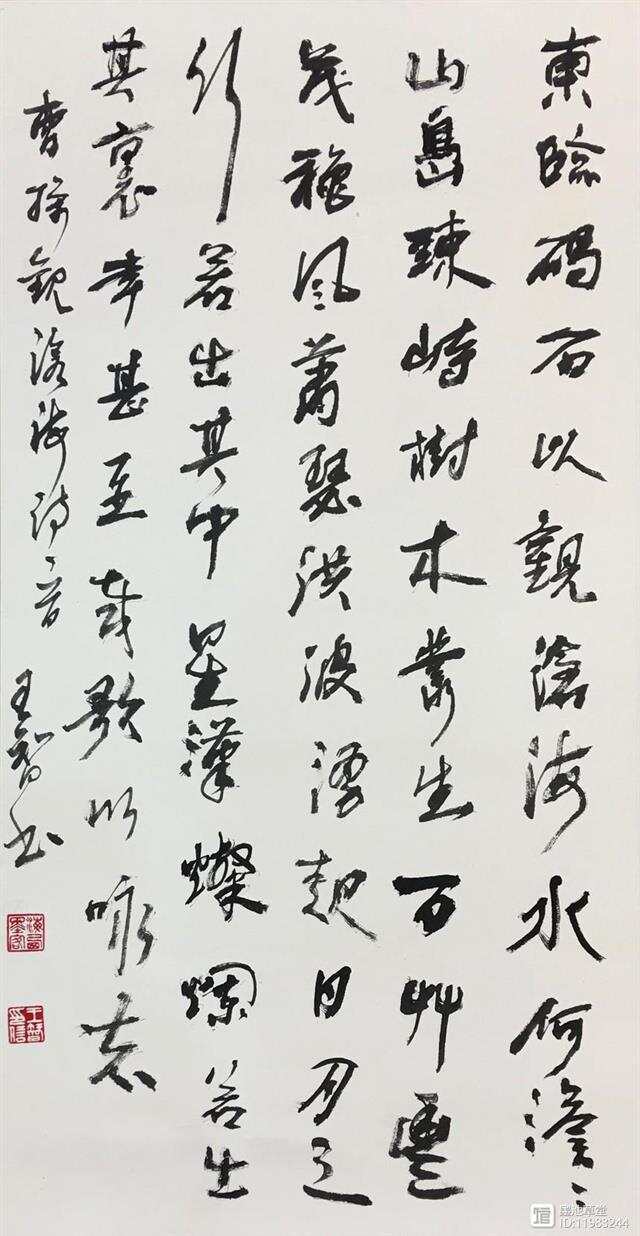 東臨碣石以觀滄海水何澹〻
山島竦峙樹木叢生百艸豐
茂穐風蕭瑟洪波湧起日月之
行若出其中星漢燦爛若出
其裏幸甚至哉歌以詠志
曹操觀滄海詩一首 王智书
王智印信
ID:11983244